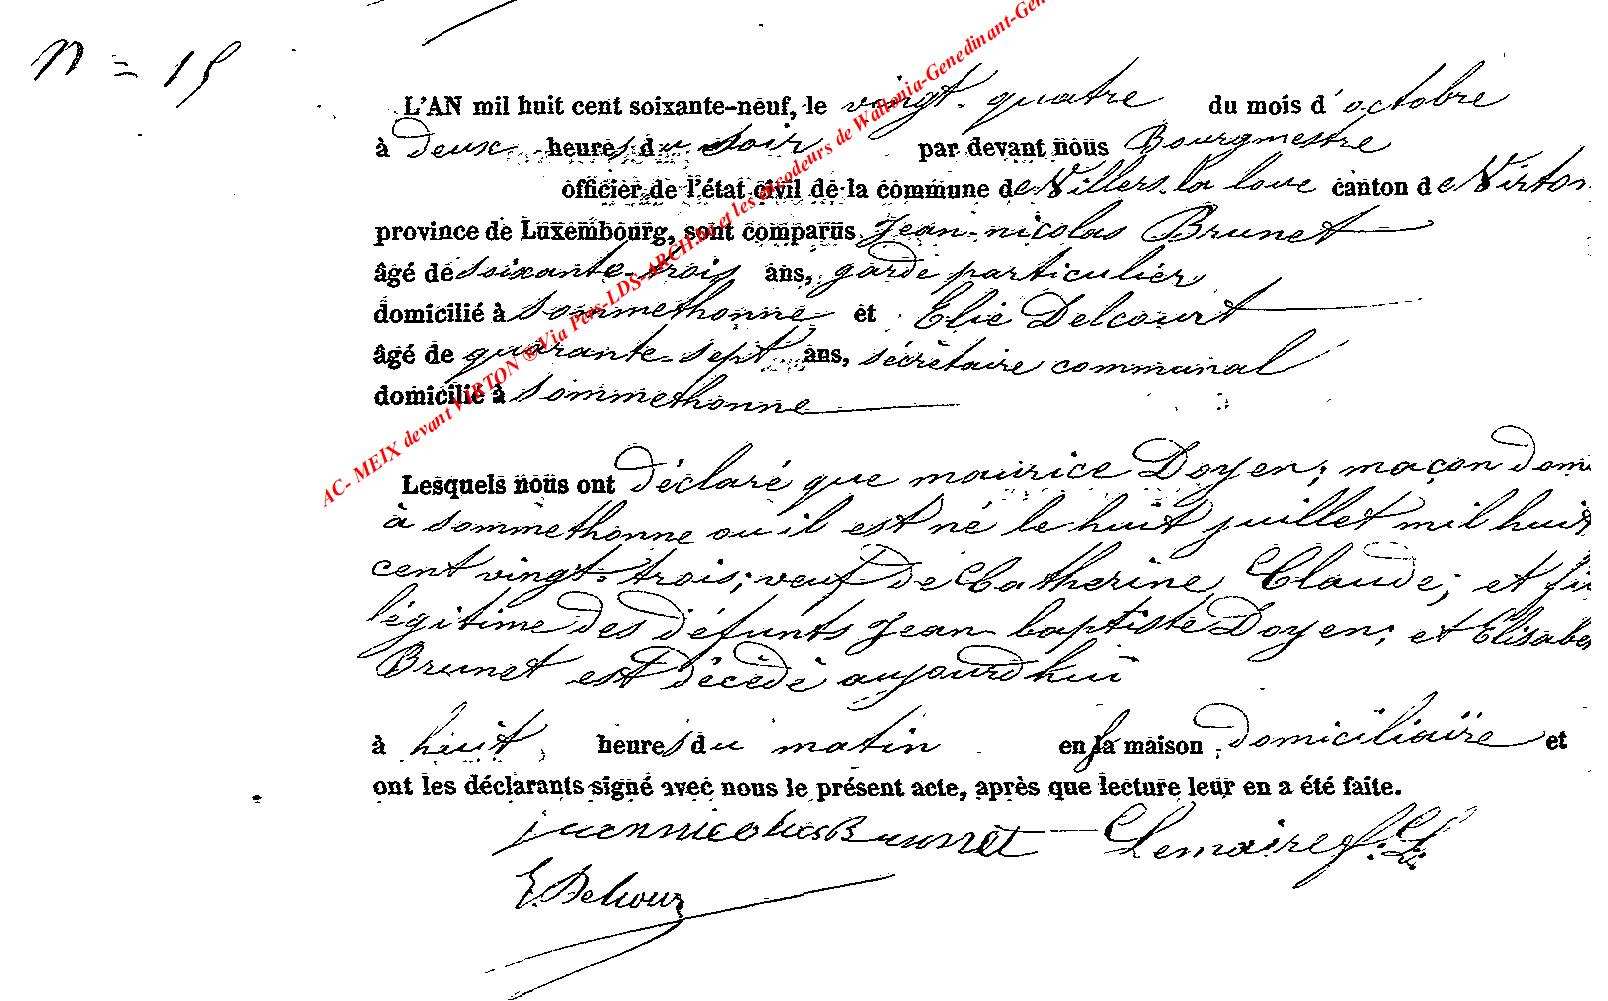 N = 15
L'AN mil huit cent soixante-neuf, le vingt-quatre du mois d'octobre
à deux heures du soir par devant nous Bourgmestre
officier de l'état civil de la commune de Villers-la loue canton de Virton
province de Luxembourg, sont comparus Jean-nicolas Brunet
âgé de soixante-trois ans, garde particulier
domicilié à Sommethonne et Elie Delcourt
âgé de quarante-sept ans, sécrètaire communal
domicilié à Sommethonne
Lesquels nous ont déclaré que maurice Doyen; maçon dom
à Sommethonne ou il est né le huit juillet mil huit
cent vingt-trois; veuf de Catherine Claude; et fi
légitime des défunts Jean baptiste Doyen; et Elisabe
Brunet est décédé aujourd'hui
à huit heures du matin en la maison domiciliaire et
ont les déclarants signé avec nous le présent acte, après que lecture leur en a été faite.
jean nicolas Brunet Lemaire
E. Delcour
AC- MEIX devant VIRTON ® Via Pers-LDS-ARCH.be et les encodeurs de Wallonia-Genedinant-Gen